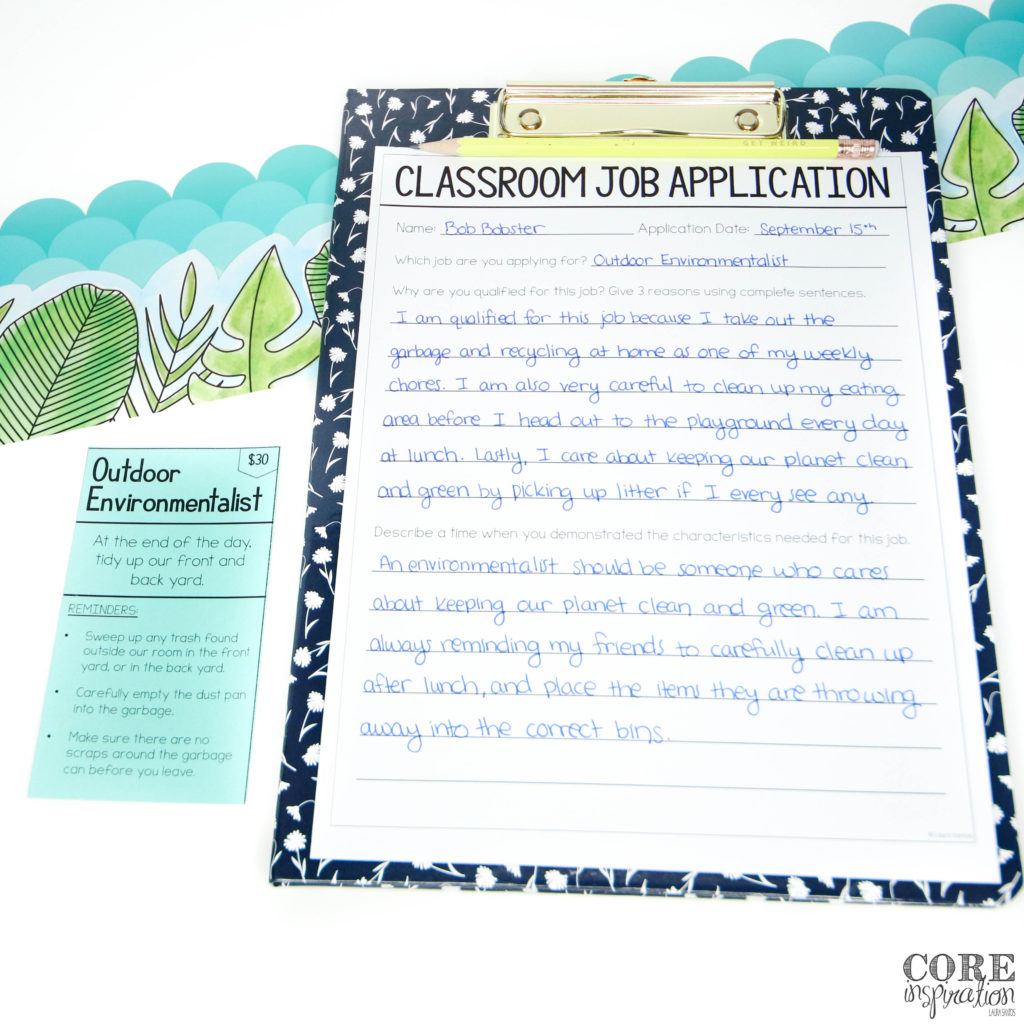 GET WEIRD
CLASSROOM JOB APPLICATION
Name: Bob Bobster Application Date: September 15th
Which job are you applying for? Outdoor Environmentalist
Why are you qualified for this job? Give 3 reasons using complete sentences.
I am qualified for this job because I take out the
garbage and recycling at home as one of my weekly
chores. I am also very careful to clean up my eating
area before I head out to the playground every day
at lunch. Lastly, I care about keeping our planet clean
and green by picking up litter if I every see any.
Describe a time when you demonstrated the characteristics needed for this job.
An environmentalist should be someone who cares
about keeping our planet clean and green. I am
always reminding my friends to carefully clean up
after lunch, and place the items they are throwing
away into the correct bins.
©Laura Santos
$30
Outdoor
Environmentalist
At the end of the day,
tidy up our front and
back yard.
REMINDERS:
• Sweep up any trash found
outside our room in the front
yard, or in the back yard.
• Carefully empty the dust pan
into the garbage.
• Make sure there are no
scraps around the garbage
can before you leave.
CORE
inspiration
LAURA SANTOS